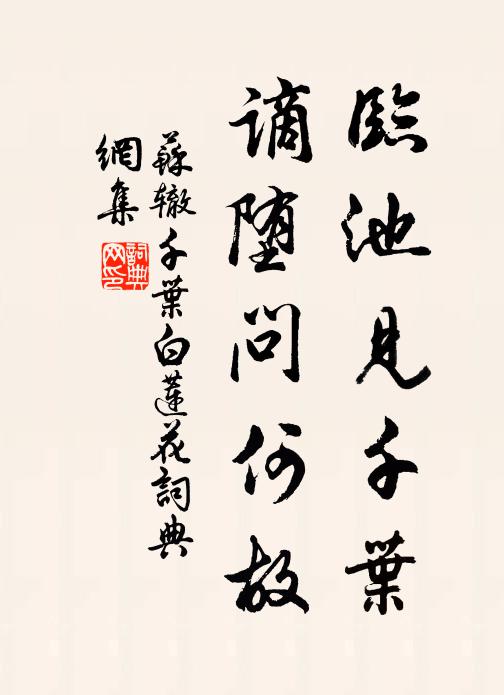 臨池見千葉
謫堕問何故
蘇辙千葉白蓮花詞典
網集
詞典
网印